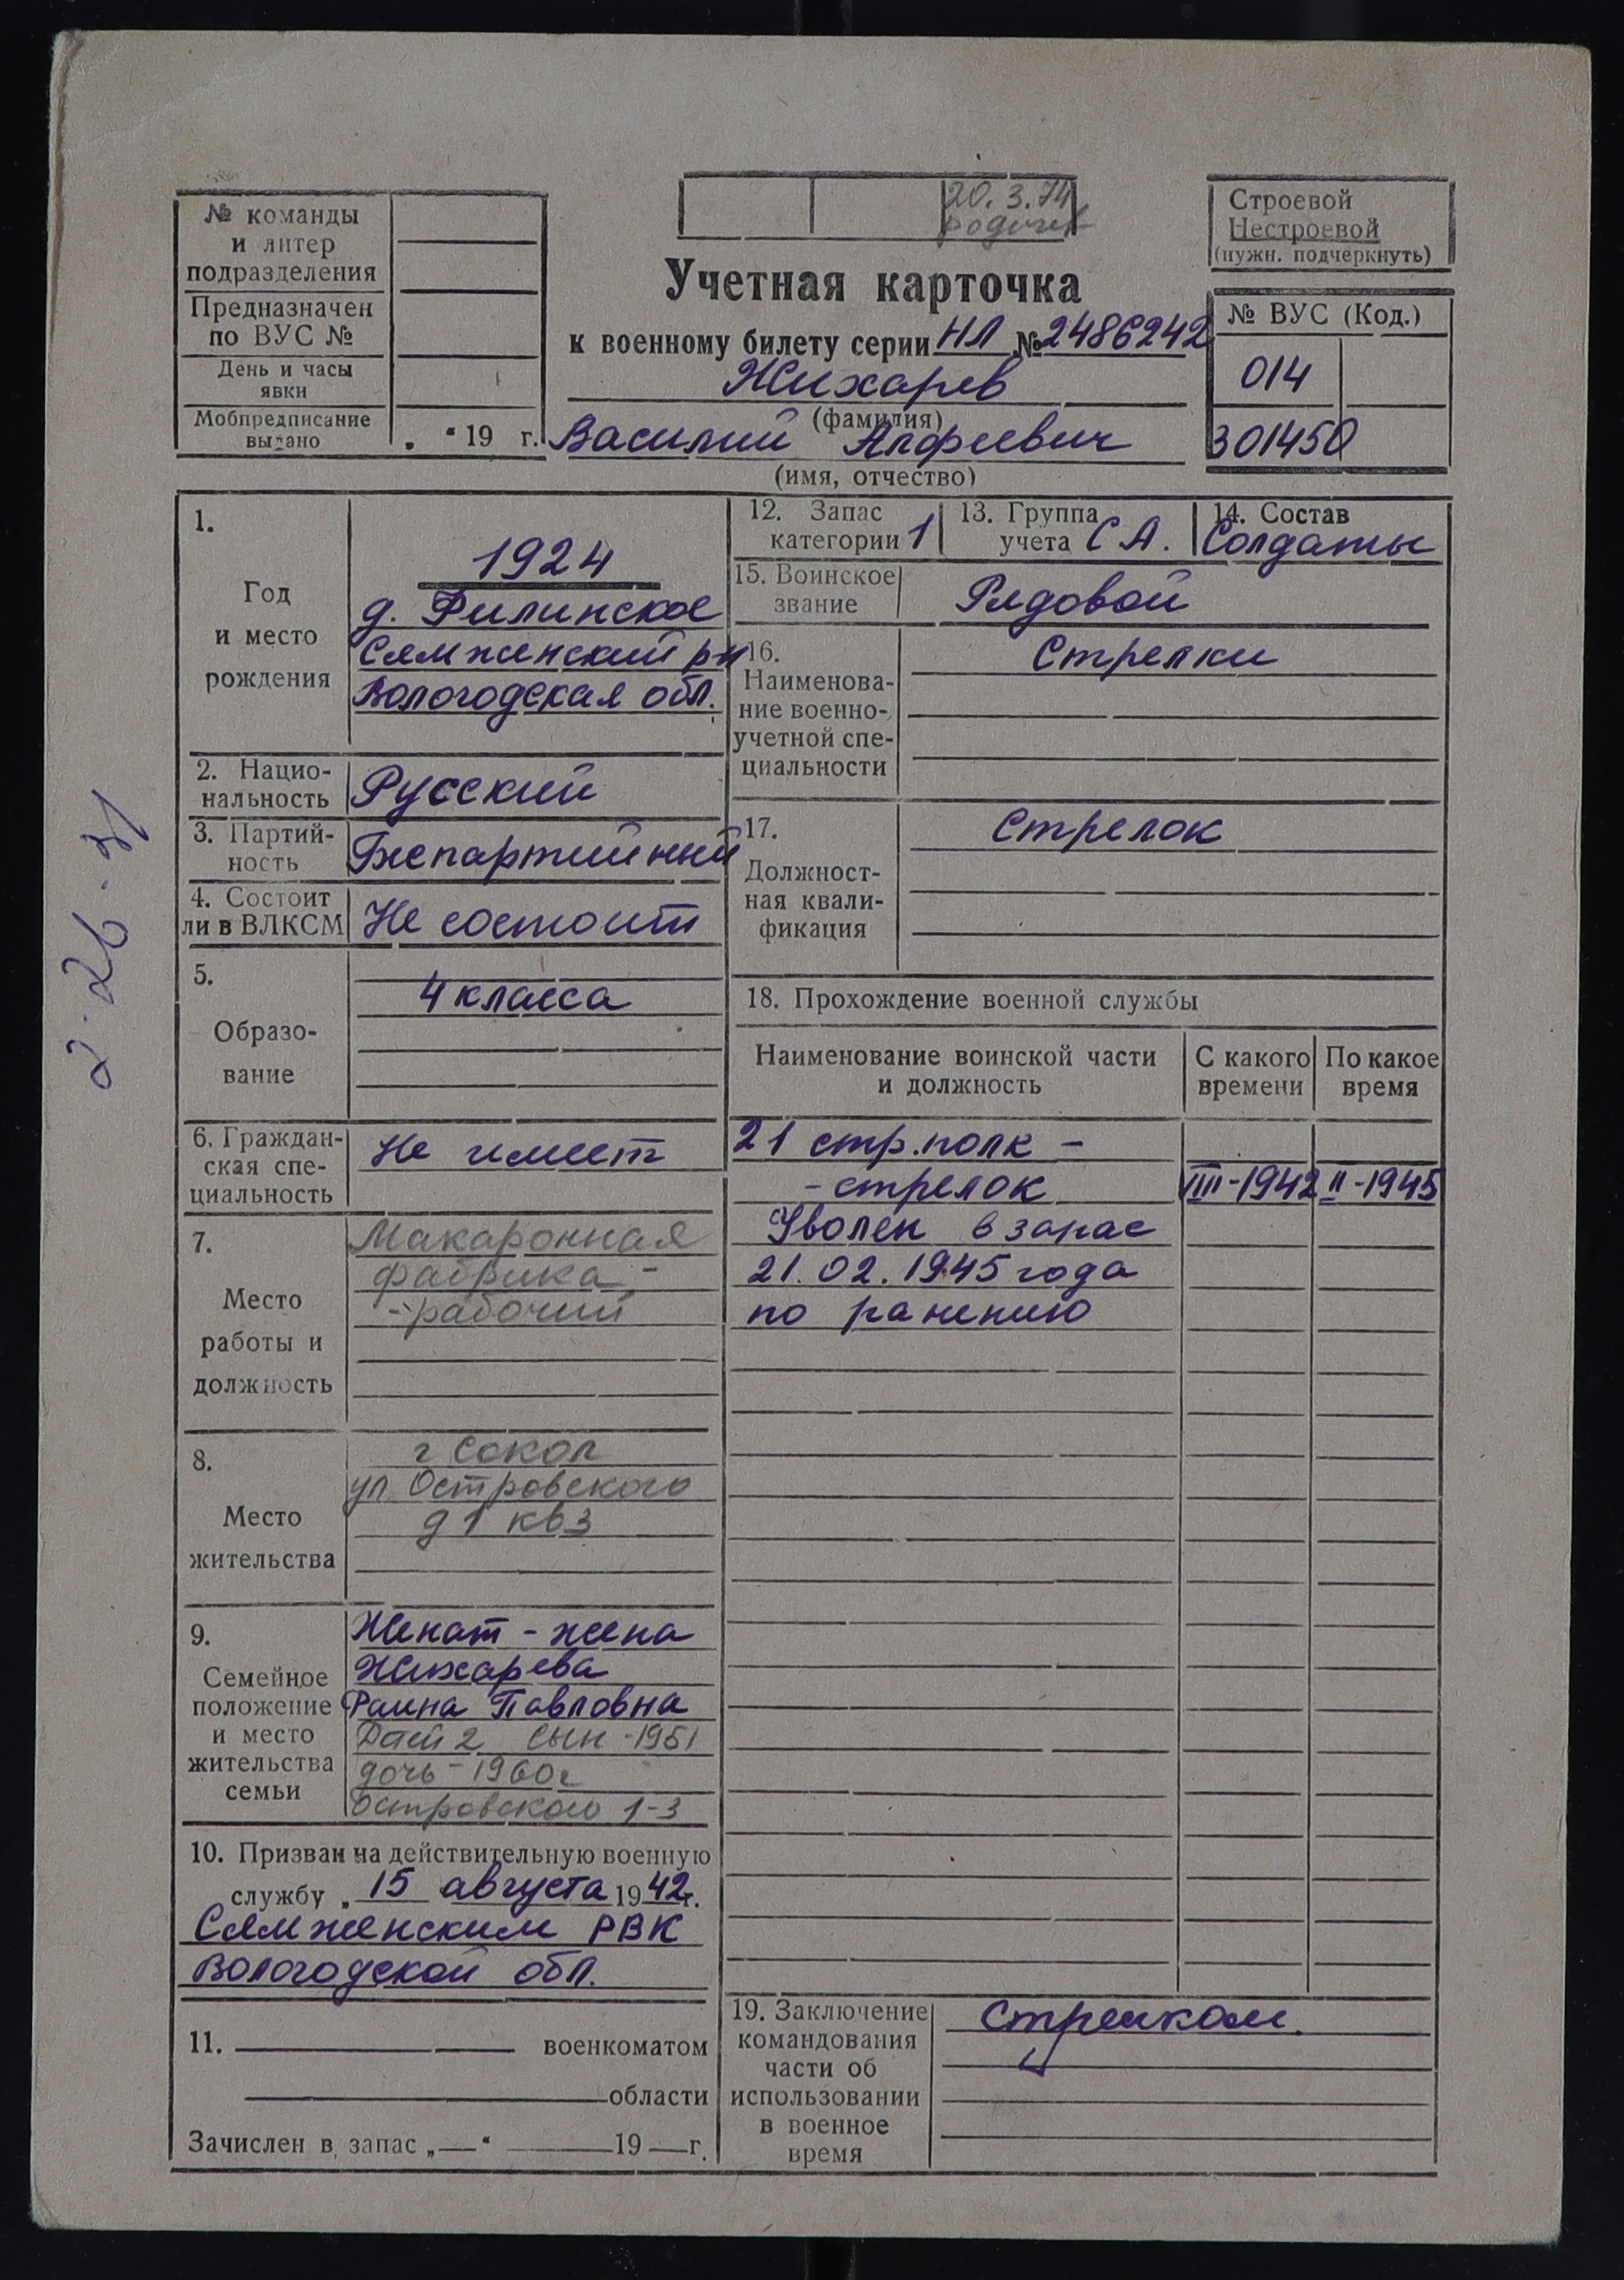 № команды
и литер
подразделения
Предназначен
по ВУС №
День и часы
явки
Мобпредписание
выдано
„ “ 19 г.
20. 3. 74
Строевой
Нестроевой
(нужн. подчеркнуть)
Учетная карточка
к военному билету серии НЛ № 2486242
Жихарев
(фамилия)
Василий Алфеевич
(имя, отчество)
№ ВУС (Код.)
014
301450
1.
Год
и место
рождения
1924
д. Филинское
Сямженский р-н
Вологодская обл.
2. Нацио-
нальность
Русский
3. Партий-
ность
Беспартийный
4. Состоит
ли в ВЛКСМ
Не состоит
5.
Образо-
вание
4 класса
6. Граждан-
ская спе-
циальность
Не имеет
7.
Место
работы и
должность
Макаронная
фабрика -
- рабочий
8.
Место
жительства
г Сокол
ул. Островского
д 1 кв 3
9.
Семейное
положение
и место
жительства
семьи
Женат - жена
Жихарева
Раина Павловна
Детей 2 сын - 1951
дочь - 1960г
Островского 1-3
10. Призван на действительную военную
службу „ 15 августа 1942г.
Сямженским РВК
Вологодской обл.
11. военкоматом
области
Зачислен в запас „—“ 19 — г.
12. Запас
категории 1
13. Группа
учета СА.
14. Состав
Солдаты
15. Воинское
звание
Рядовой
16.
Наименова-
ние военно-
учетной спе-
циальности
Стрелки
17.
Должност-
ная квали-
фикация
Стрелок
18. Прохождение военной службы
Наименование воинской части
и должность
С какого
времени
По какое
время
21 стр. полк -
- стрелок VIII-1942 II-1945
Уволен в запас
21.02.1945 года
по ранению
19. Заключение
командования
части об
использовании
в военное
время
Стрелком.